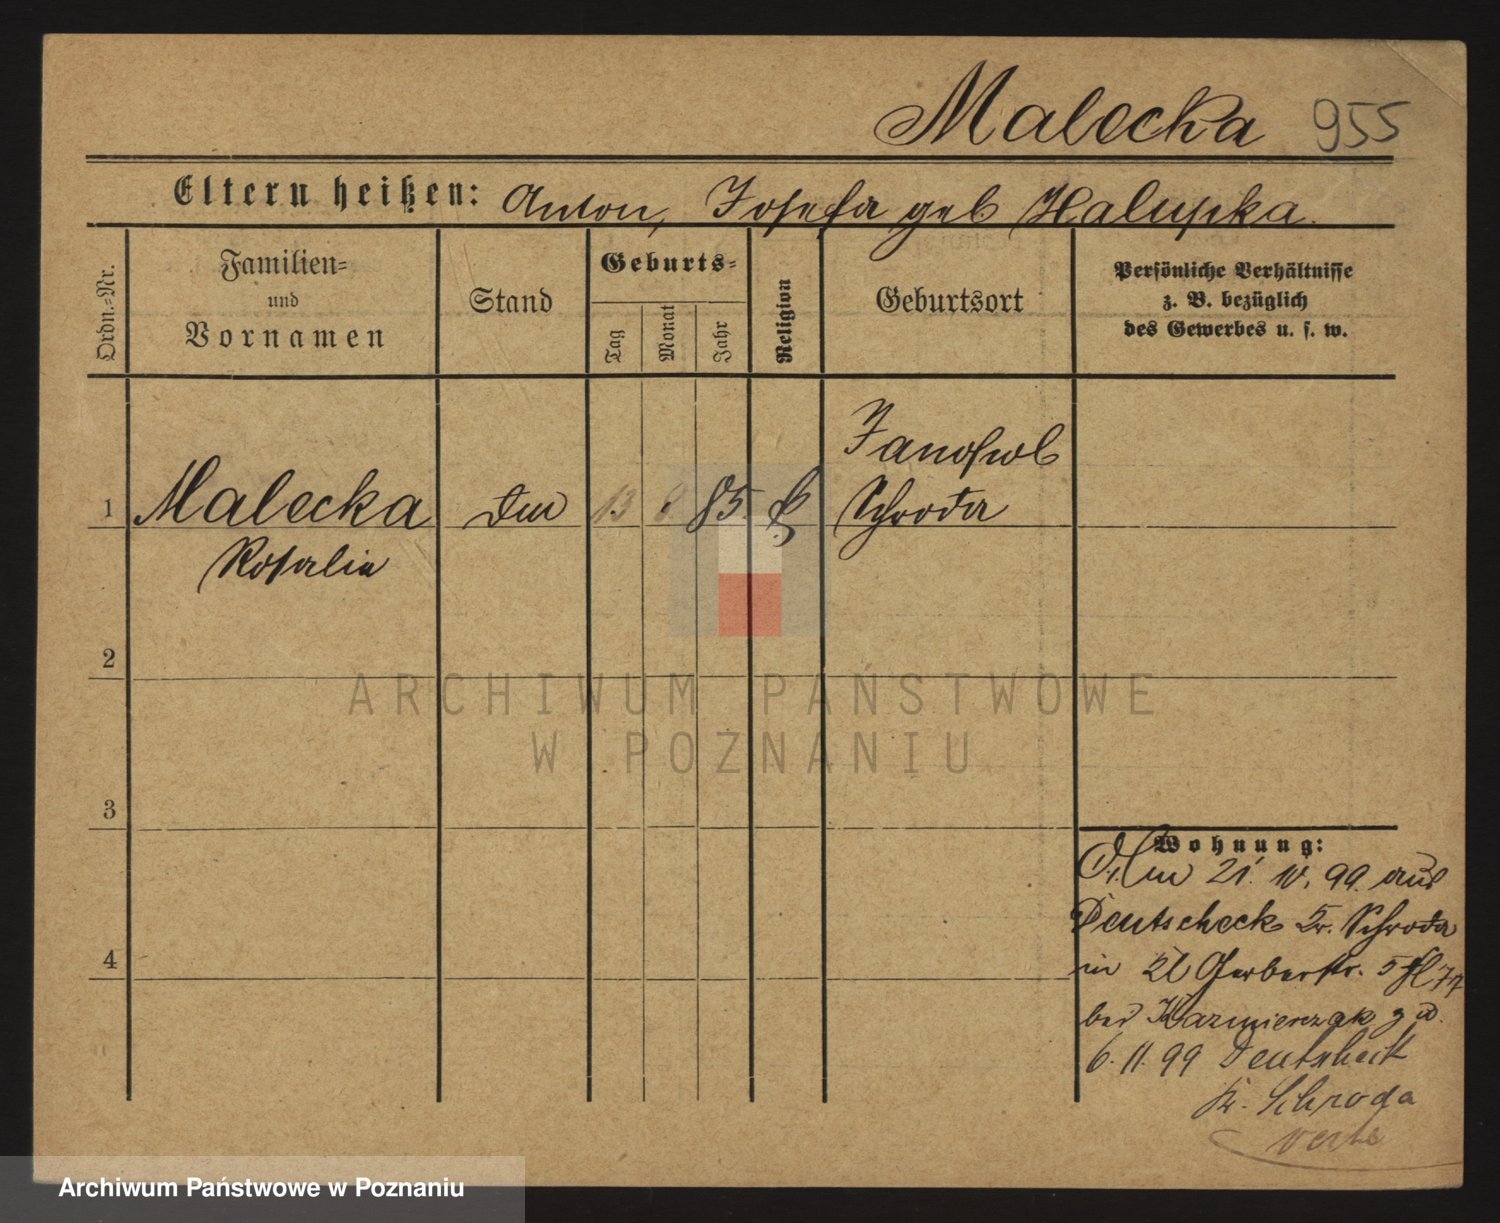 Malecka 955
Eltern heißen: Anton, Josefa geb Halupka.
Ordn.=Nr.
Familien=
und
Vornamen
Stand
Geburts=
Tag
Monat
Jahr
Religion
Geburtsort
Persönliche Verhältnisse
z. B. bezüglich
des Gewerbes u. s. w.
1
Malecka
Rosalie
13
85
Schroda
2
3
4
Wohnung:
21. 99. aus
Deutscheck Kr. Schroda
in Gerberstr. 5
bei Kazmierzak
6. 11. 99 Deutscheck
Kr. Schroda
verte
ARCHIWUM PAŃSTWOWE
W POZNANIU
Archiwum Państwowe w Poznaniu